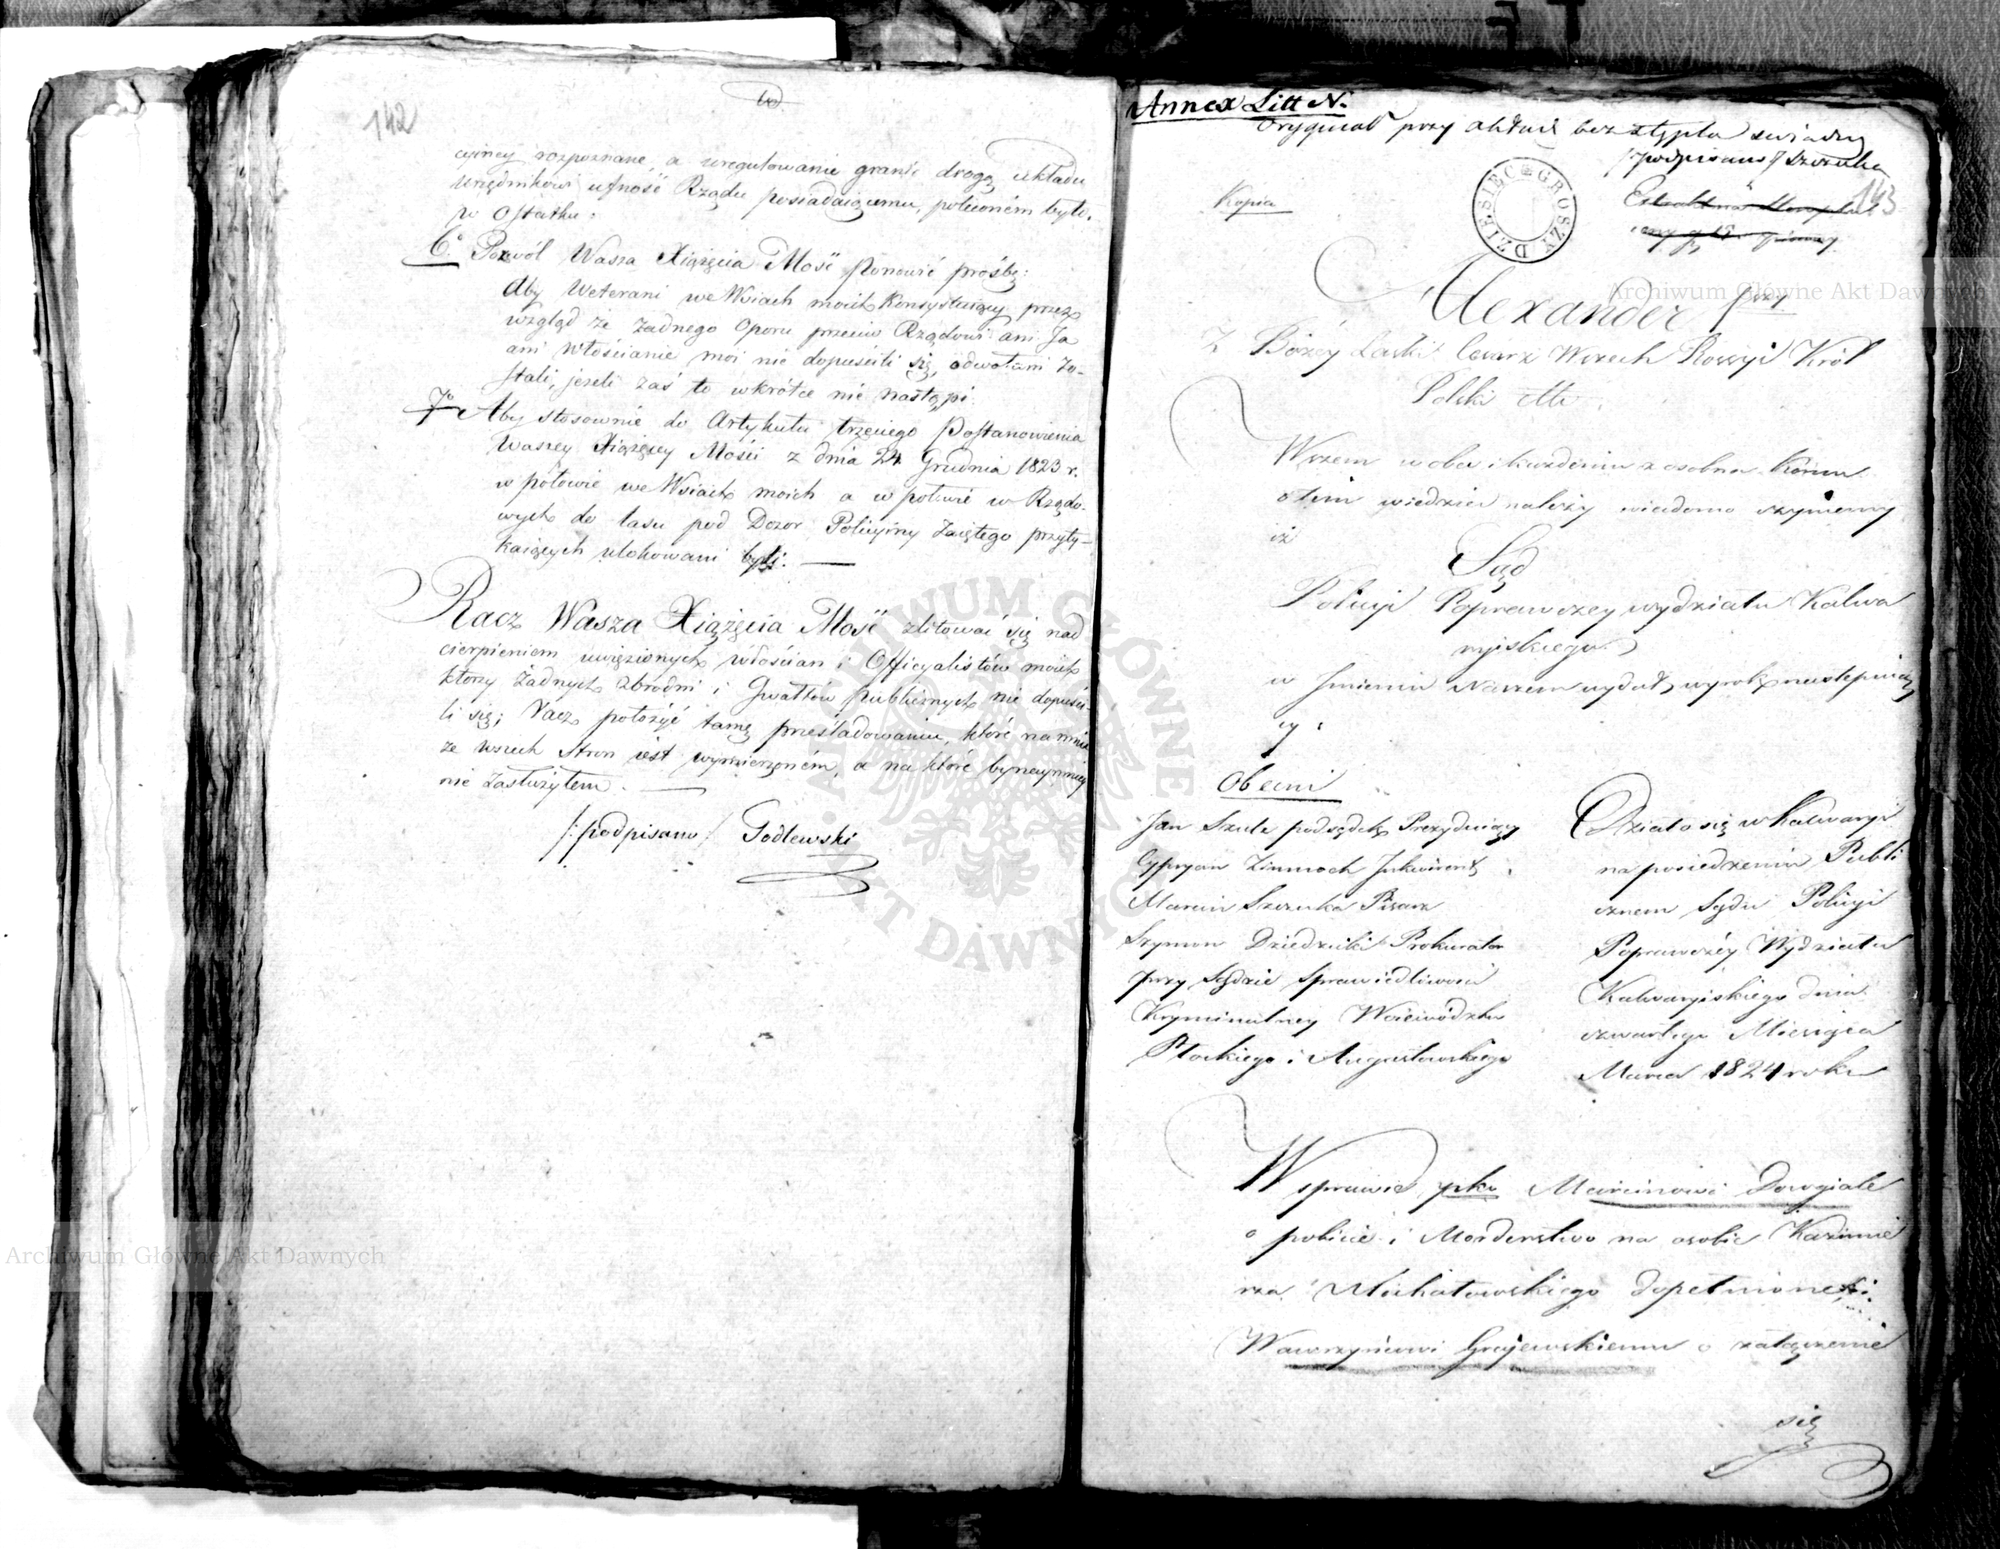 142
cyiney rozpoznane, a uregulowanie granic drogą układu
Urzędnikowi ufność Rządu posiadaiącemu, poleconém było.
w Ostatku:
6° Pozwól Wasza Xiążęcia Mość ponowić prośbę:
Aby Weterani we Wsiach moich Konsystuiący przez
wzgląd że żadnego Oporu przeciw Rządowi ani Ja
ani włościanie moi nie dopuścili się, odwołani zo-
stali, jeżeli zaś to wkrótce nie nastąpi
7° Aby stosownie do Artykułu trzęciego Postanowienia
Waszey Xiążęcey Mości z dnia 24 Grudnia 1823 r.
w połowie we Wsiach moich a w połowie w Rządo-
wych do lasu pod Dozor Policyiny Zaiętego przyty-
kaiących ulokowani byli. —
Racz Wasza Xiążęcia Mość zlitować się nad
cierpieniem uwięzionych włościan i Officyalistów moich
którzy żadnych zbrodni i Gwałtów publicznych nie dopuści-
li się; racz położyć tamę prześladowaniu, które na mnie
ze wszech stron iest wymierzoném, a na które bynaymniey
nie zasłużyłem. —
/: podpisano / Godlewski
Annex Litt N.
Oryginał przy aktach bez stępla
/podpisano/ Szczuka
143
Kopia
DZIESIĘĆ GROSZY
Alexander
Z Bożéy Łaski Cesarz Wszech Rossyi Król
Polski etc.
Wszem wobec i każdemu z osobna Komu
o tem wiedzieć należy wiadomo czyniemy
iż
Sąd
Policyi Poprawczey wydziału Kalwa
ryiskiego
w Jmieniu Naszem wydał wyrok następuią
cy:
Obecni
Jan Szulz podsędek Prezyduiący
Cypryan Zimnoch Jnkwirent
Marcin Szczuka Pisarz
Szymon Dziedzicki Prokurator
przy Sądzie Sprawiedliwości
Kryminalney Woiewództw
Płockiego i Augustowskiego
Działo się w Kalwaryi
na posiedzeniu Publi
cznem Sądu Policyi
Poprawczéy Wydziału
Kalwaryiskiego dnia
czwartego Miesiąca
Marca 1824 roku
W sprawie pko Marcinowi Dowgiale
o pobicie i Morderstwo na osobie Kazimie
rza Michałowskiego dopełnione i
Wawrzyńcowi Grajewskiemu o załączenie
się
Archiwum Główne Akt Dawnych
Archiwum Główne Akt Dawnych
ARCHIWUM GŁÓWNE AKT DAWNYCH